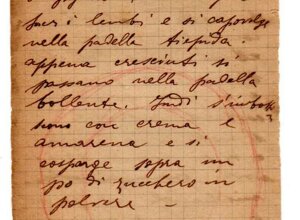 suoi lembi e si capovolge
nella padella tiepida.
appena cresciuti si
passano nella padella
bollente. Indi s'imbot=
tono con crema e
amarena e si
cosparge sopra un
po di zucchero in
polvere —